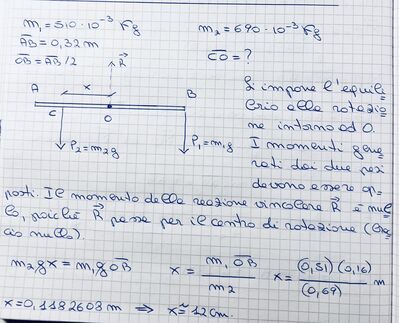 m₁ = 510 · 10⁻³ Kg m₂ = 690 · 10⁻³ Kg
AB = 0,32 m CO = ?
OB = AB/2 R
x
A B
C O
P₂ = m₂g P₁ = m₁g
Si impone l'equili
brio alla rotazio
ne intorno ad O.
I momenti gene
rati dai due pesi
devono essere op
posti. Il momento della reazione vincolare R è nul
lo, poiché R passa per il centro di rotazione (brac
cio nullo).
m₂gx = m₁g OB x = m₁ OB / m₂ x = (0,51)(0,16) / (0,69) m
x = 0,1182608 m ⇒ x ≅ 12 cm.